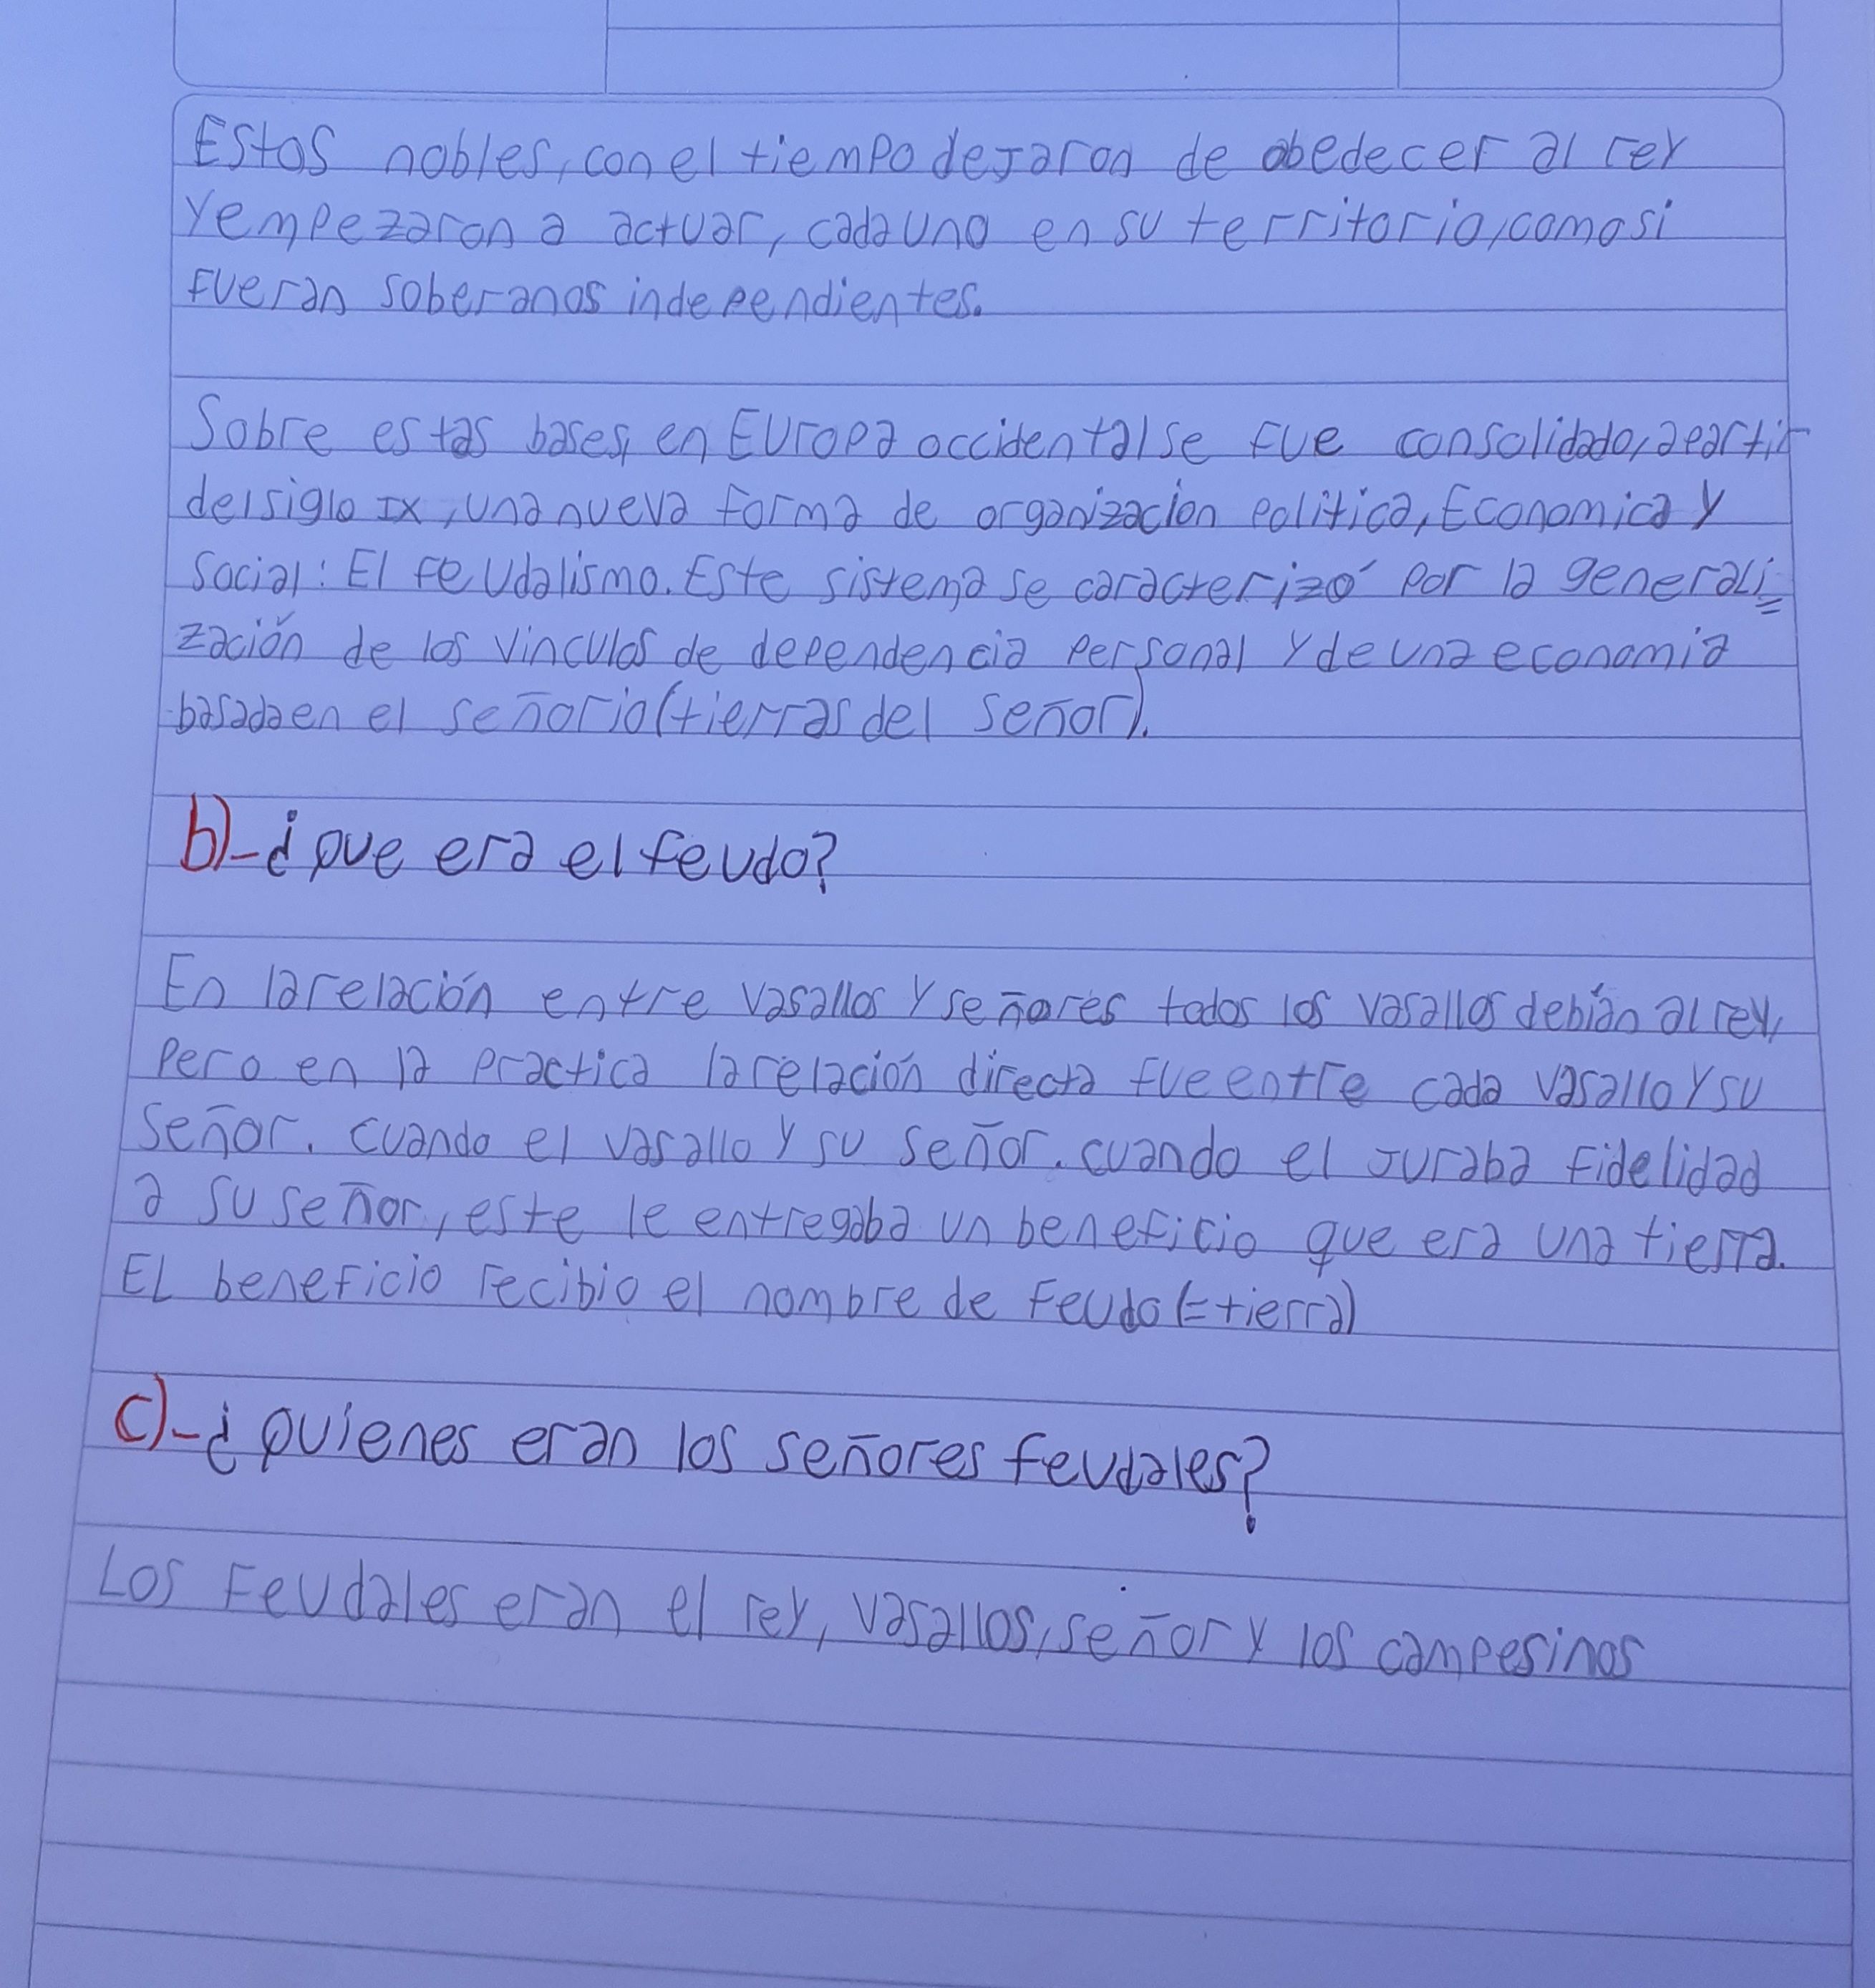 Estos nobles, con el tiempo dejaron de obedecer al rey
y empezaron a actuar, cada uno en su territorio, como si
fueran soberanos independientes.
Sobre estas bases, en Europa occidental se fue consolidado, a partir
del siglo IX, una nueva forma de organización política, Economica y
Social: El feudalismo. Este sistema se caracterizó por la generali=
zación de los vinculos de dependencia personal y de una economia
basada en el señorio (tierras del señor).
b)-¿que era el feudo?
En la relación entre vasallos y señores todos los vasallos debían al rey,
pero en la practica la relación directa fue entre cada vasallo y su
señor. cuando el vasallo y su señor. cuando el juraba fidelidad
a su señor, este le entregaba un beneficio que era una tierra.
EL beneficio recibio el nombre de feudo (=tierra)
c)-¿quienes eran los señores feudales?
Los Feudales eran el rey, vasallos, señor y los campesinos